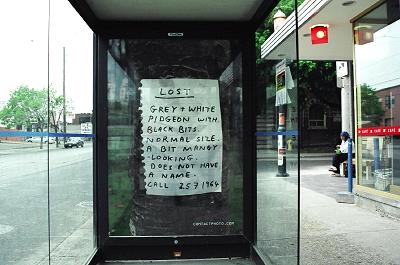 LOST
GREY + WHITE
PIDGEON WITH
BLACK BITS.
NORMAL SIZE.
A BIT MANGY
-LOOKING.
DOES NOT HAVE
A NAME.
CALL 257 1964
CONTACTPHOTO.COM